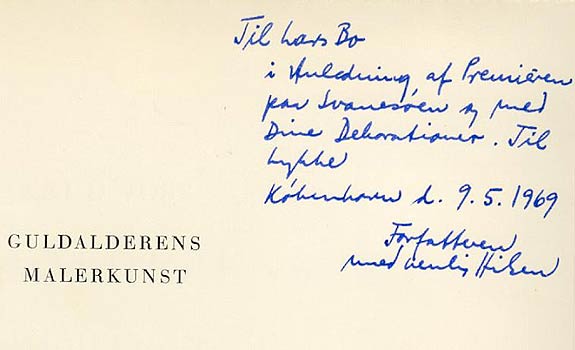 Til Lars Bo
i Anledning af Premièren
paa Svanesøen og med
Dine Dekorationer. Til
Lykke
København d. 9.5.1969
Forfatteren
med venlig Hilsen
GULDALDERENS
MALERKUNST